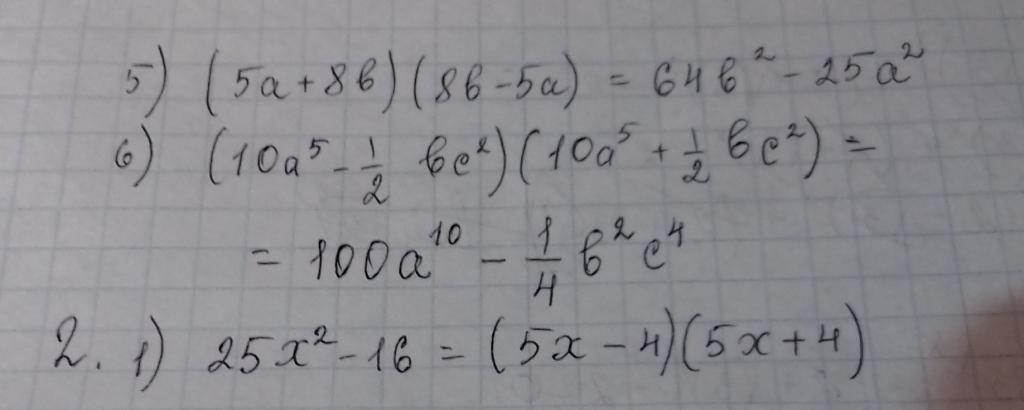 5) (5a + 8b)(8b - 5a) = 64b² - 25a²
6) (10a⁵ - 1/2 bc²)(10a⁵ + 1/2 bc²) =
= 100a¹⁰ - 1/4 b²c⁴
2. 1) 25x² - 16 = (5x - 4)(5x + 4)